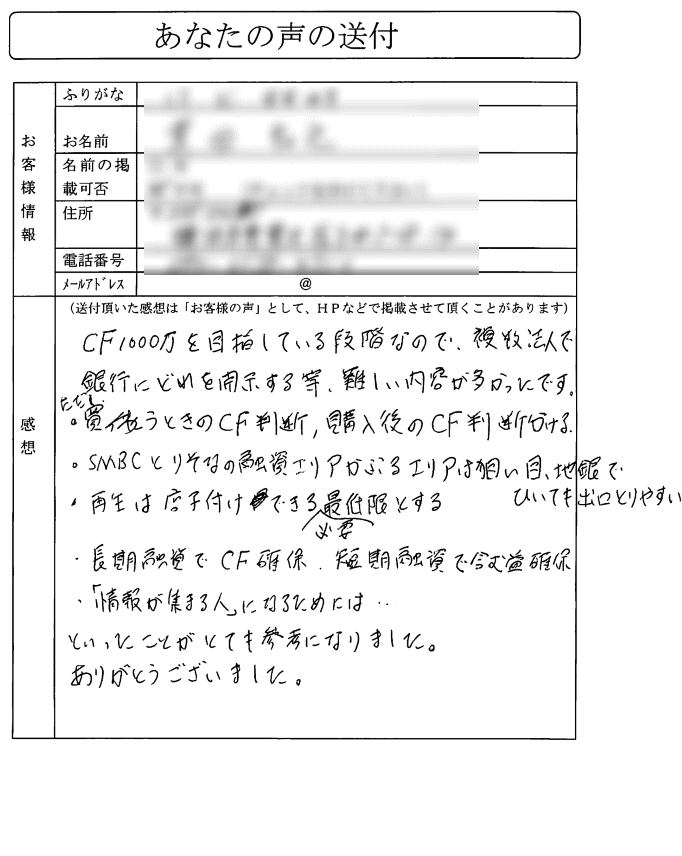 あなたの声の送付
お客様情報
ふりがな
お名前
名前の掲
載可否
住所
電話番号
ﾒｰﾙｱﾄﾞﾚｽ
@
感想
(送付頂いた感想は「お客様の声」として、HPなどで掲載させて頂くことがあります)
CF1000万を目指している段階なので、複数法人で
銀行にどれを開示する等、難しい内容が多かったです。
ただし
・買うときのCF判断, 購入後のCF判断分ける
・SMBCとりそなの融資エリアかぶるエリアは狙い目、地銀で
ひいても出口とりやすい
・再生は店子付けできる最低限とする
必要
・長期融資でCF確保. 短期融資で含む益確保
・「情報が集まる人」になるためには‥
といったことがとても参考になりました。
ありがとうございました。